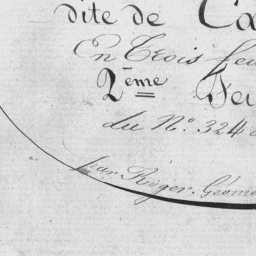 dite de Ca
En Trois feu
2ème Feu
du N.º 324 a
par Roger, Géome